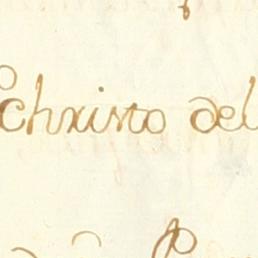 christo del